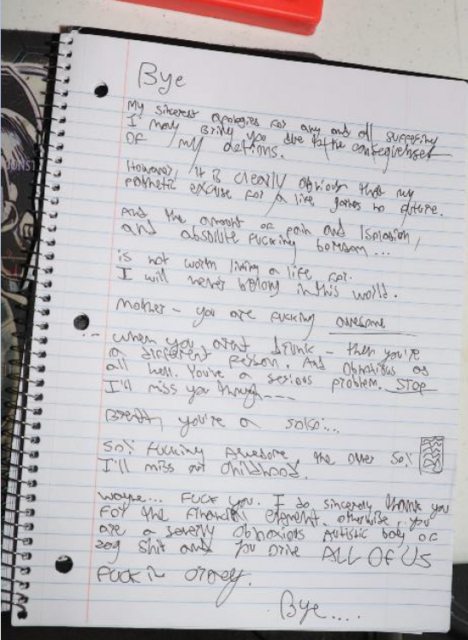 Bye
My sincerest apologies for any and all suffering
I may bring you due to the consequenses
OF my actions.
However, it is clearly obvious that my
pathetic excuse for a life gares no future.
And the amount of pain and Isolation,
and absolute fucking boredom...
is not worth living a life for.
I will never belong in this world.
Mother - you are fucking awesome
when you arent drunk - then you're
a different person. And obnoxious as
all hell. You've a serious problem. STOP
I'll miss you though----
you're a
So! fucking awesome, the other So!
I'll miss our childhood.
wayne... FUCK you. I do sincerely thank you
FOR the financial element. otherwise, you
are a severly obnoxious autistic bag of
dog shit and you drive ALL OF US
FUCKIN crazy.
Bye....